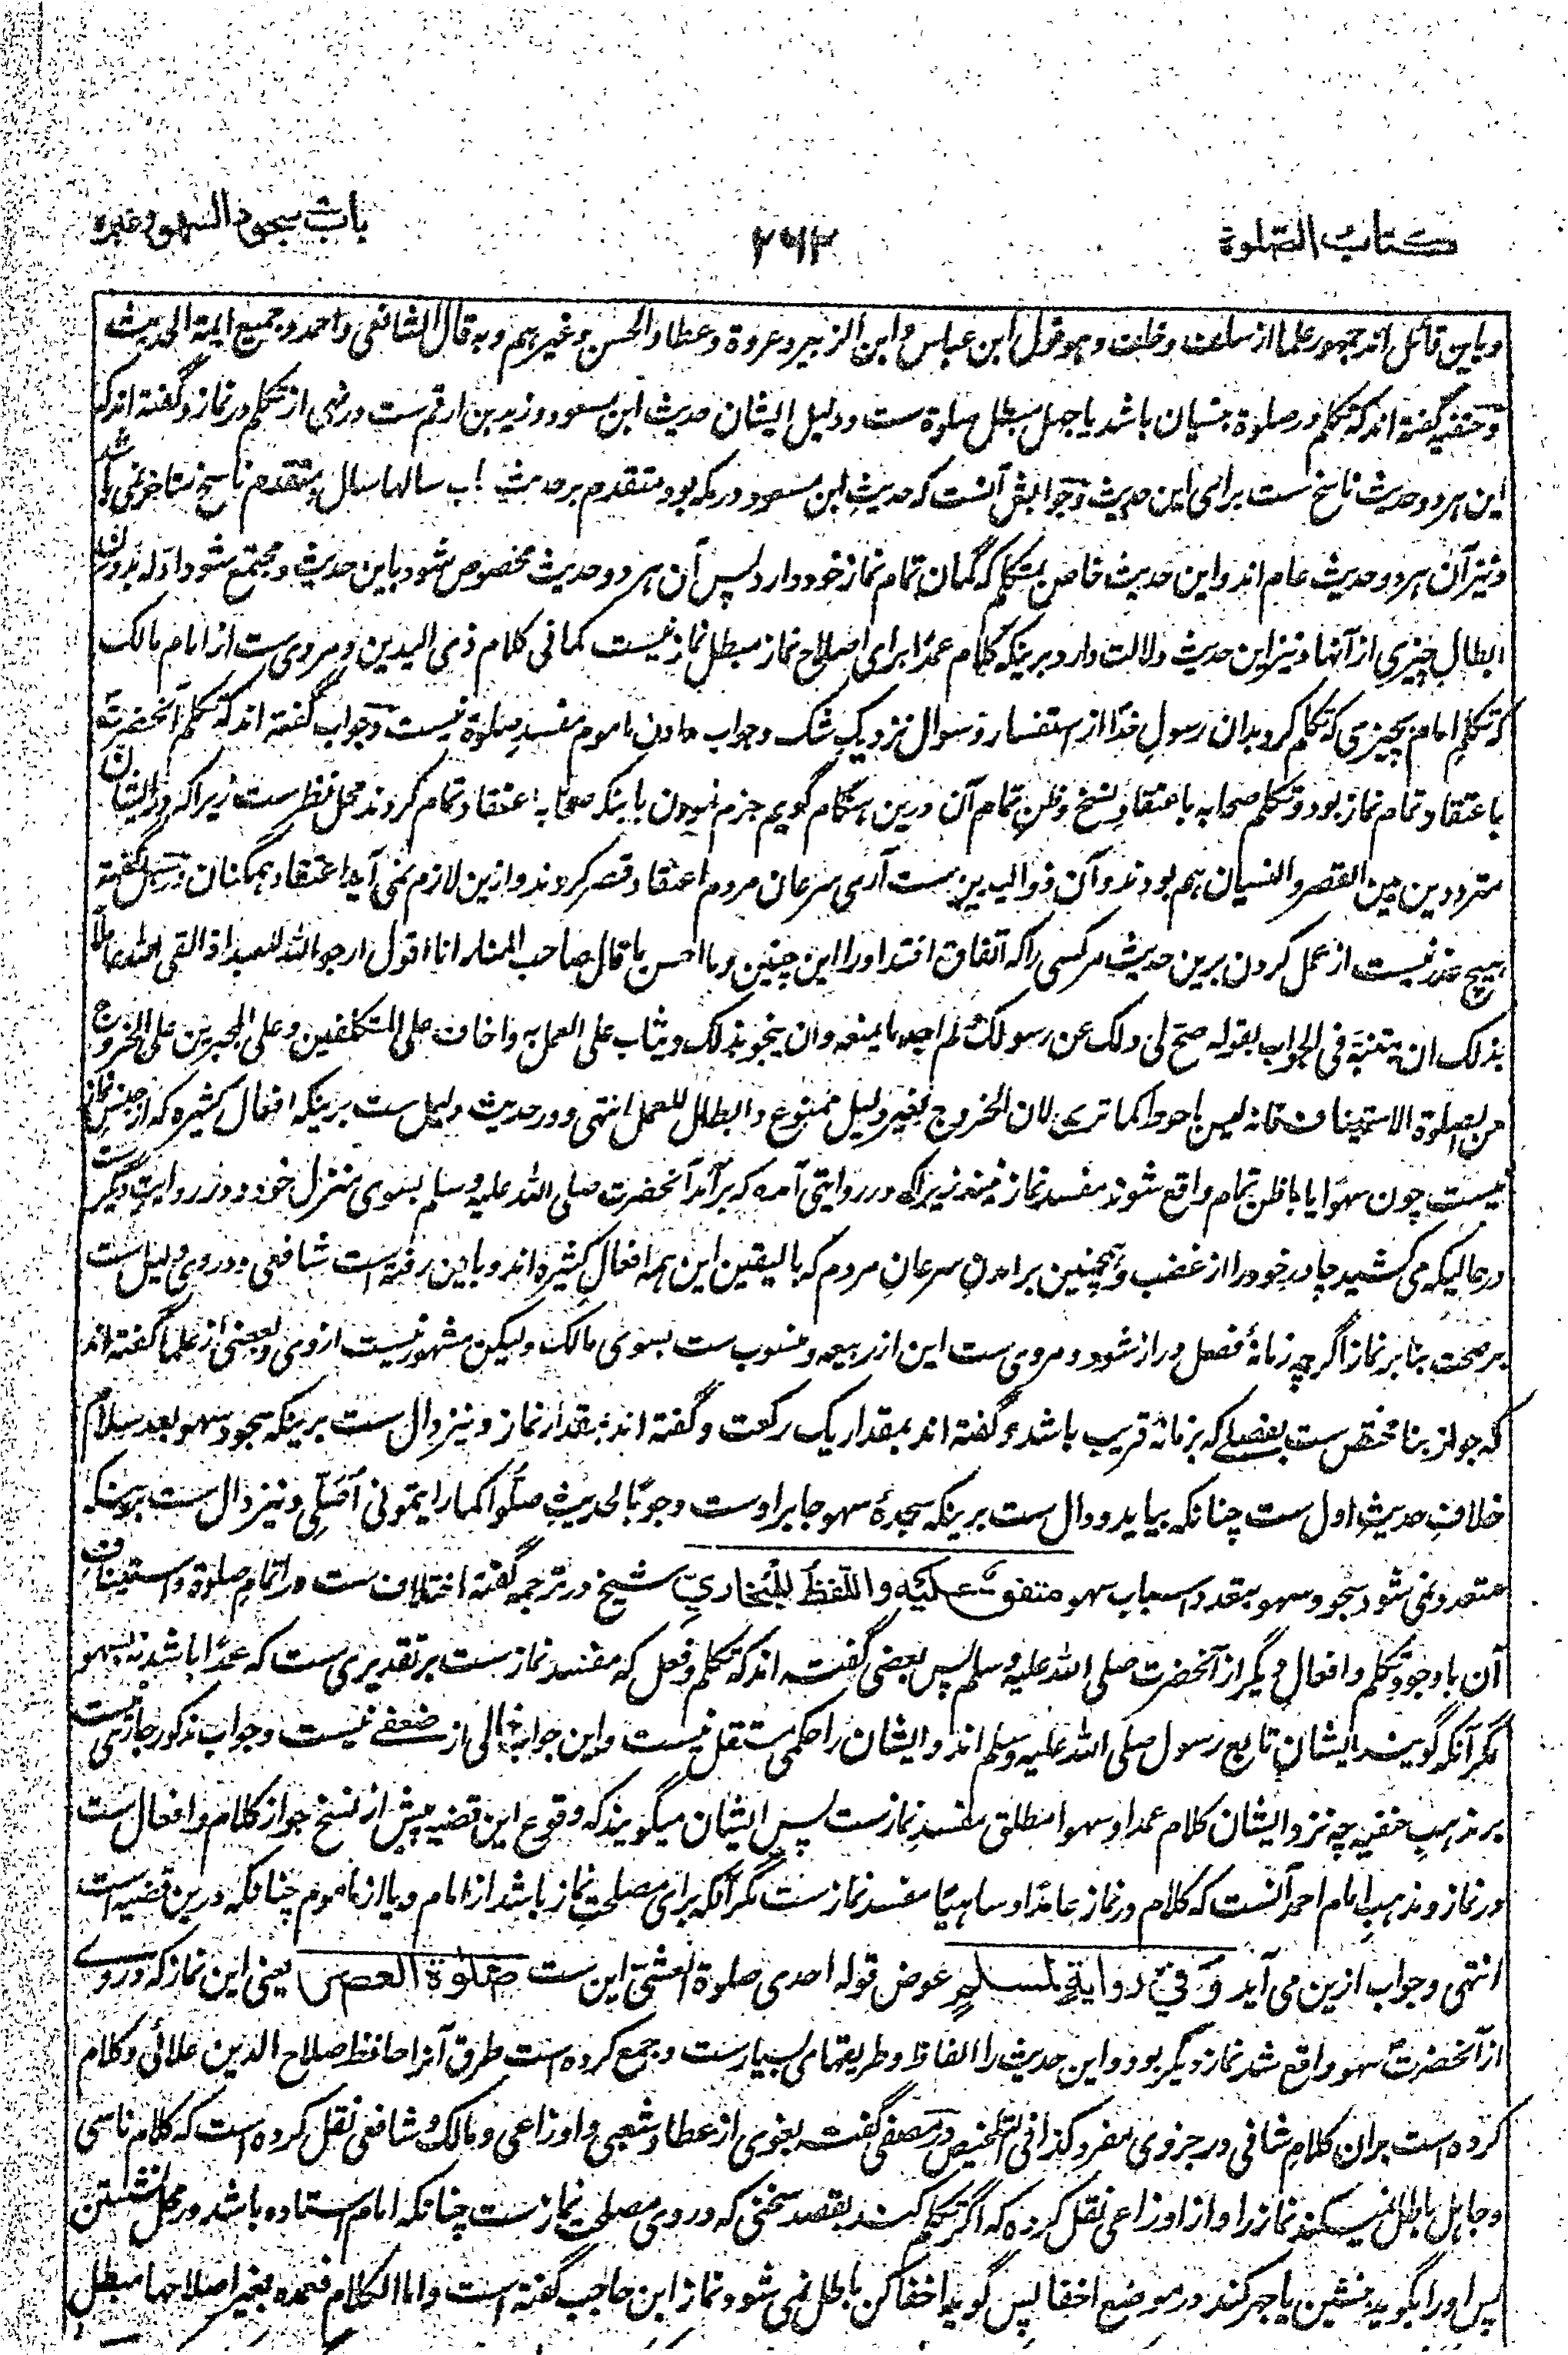 کتاب الصلوة
۲۶۳
باب سجود السهو وغیره
وباین قائل اند جمهور علما از سلف وخلف وهو قول ابن عباس وابن الزبیر وعروة وعطا والحسن وغیرهم وبه قال الشافعی واحمد وجمیع ایمة الحدیث
وحنفیه گفته اند که تکلم در صلوة بنسیان باشد یا جهل مبطل صلوة ست ودلیل ایشان حدیث ابن مسعود وزید بن ارقم ست در نهی از تکلم در نماز وگفته اند که
این هر دو حدیث ناسخ ست برای این حدیث وجوابش آنست که حدیث ابن مسعود در مکه بود متقدم بر حدیث باب سالها سال ومتقدم ناسخ متاخر نمی باشد
ونیز آن هر دو حدیث عام اند واین حدیث خاص بمتکلم که گمان تمام نماز خود دارد پس آن هر دو حدیث مخصوص شود باین حدیث ومجتمع شود ادله بدون
ابطال چیزی از آنها ونیز این حدیث دلالت دارد برینکه کلام عمدا برای اصلاح نماز مبطل نماز نیست کما فی کلام ذی الیدین ومروی ست از امام مالک
که تکلم امام بچیزی که تکلم کرد بدان رسول خدا از استفسار وسوال نزدیک شک وجواب دادن ماموم مفسد صلوة نیست وجواب گفته اند که تکلم آنحضرت
با عتقاد تمام نماز بود وتکلم صحابه باعتقاد نسخ وظن تمام آن درین هنگام گویم جزم نمودن باینکه صحابه اعتقاد تمام کردند محل نظر ست زیراکه در ایشان
مترددین بین القصر والنسیان هم بودند وآن ذوالیدین ست آری سرعان مردم اعتقاد قصر کردند وازین لازم نمی آید اعتقاد همگنان در سبل گفته
هیچ عذر نیست از عمل کردن برین حدیث مر کسی را که اتفاق افتد او را این چنین وما احسن ما قال صاحب المنار انا اقول ارجو الله للعبد اذا لقی الله عاملا
بذلک ان یثبته فی الجواب بقوله صح لی ذلک عن رسولک ولم اجد ما یمنعه وان ینجو بذلک ویثاب علی العمل به واخاف علی المتکلفین وعلی المجبرین علی الخروج
من الصلوة الاستیناف فانه لیس باحوط کما تری لان الخروج بغیر دلیل ممنوع وابطال للعمل انتهی ودر حدیث دلیل ست برینکه افعال کثیره که از جنس نماز
نیست چون سهوا یا باظن تمام واقع شوند مفسد نماز نیند زیراکه در روایتی آمده که برآمد آنحضرت صلی الله علیه وسلم بسوی منزل خود ودر روایت دیگر ست
درحالیکه می کشید چادر خود را از غضب وهمچنین برامدن سرعان مردم که بالیقین این همه افعال کثیره اند وباین رفته است شافعی ودر وی دلیل ست
بر صحت بنا بر نماز اگرچه زمانهٔ فصل دراز شود ومروی ست این از ربیعه ومنسوب ست بسوی مالک ولیکن مشهور نیست از وی وبعضی از علما گفته اند
که جواز بنا مختص ست بفصلے که بزمانهٔ قریب باشد وگفته اند بمقدار یک رکعت وگفته اند بقدار نماز ونیز دال ست برینکه سجود سهو بعد سلام
خلاف حدیث اول ست چنانکه بیاید ودال ست برینکه سجدهٔ سهو جابر اوست وجوبا لحدیث صلوا کما رایتمونی اصلی ونیز دال ست برینکه
متعدد نمی شود سجود سهو بتعدد اسباب سهو متفق علیه واللفظ للبخاری شیخ در ترجمه گفته اختلاف ست در اتمام صلوة واستیناف
آن با وجود تکلم وافعال دیگر از آنحضرت صلی الله علیه وسلم پس بعضی گفته اند که تکلم وفعل که مفسد نماز ست بر تقدیری ست که عمدا باشد نه بسهو
مگر آنکه گویند ایشان تابع رسول صلی الله علیه وسلم اند وایشان را حکمی مستقل نیست واین جواب خالی از ضعفے نیست وجواب مذکور جاری نیست
بر مذهب حنفیه چه نزد ایشان کلام عمدا وسهوا مطلق مفسد نماز ست پس ایشان میگویند که وقوع این قضیه پیش از نسخ جواز کلام وافعال ست
در نماز ومذهب امام احمد آنست که کلام در نماز عامدا وساهیا مفسد نماز ست مگر آنکه برای مصلحت نماز باشد از امام ویا از ماموم چنانکه درین قضیه است
انتهی وجواب ازین می آید وفی روایة لمسلم عوض قوله احدی صلوة العشی این ست صلوة العصر یعنی این نماز که در وے
از آنحضرت سهو واقع شد نماز دیگر بود واین حدیث را الفاظ وطریقهامی بسیار ست وجمع کرده است طرق آنرا حافظ صلاح الدین علائی وکلام
کرده است بران کلام شافی در جزوی مفرد کذا فی التلخیص در مصفی گفت بغوی از عطا وشعبی واوزاعی ومالک وشافعی نقل کرده است که کلام ناسی
وجاهل باطل نمیکند نماز را واز اوزاعی نقل کرده که اگر تکلم کند بقصد سخنی که در وی مصلحت نماز ست چنانکه امام استاده باشد در محل نشستن
پس او را بگوید بنشین یا جهر کند در موضع اخفا پس گوید اخفا کن باطل نمی شود نماز ابن حاجب گفته است واما الکلام فعمده بغیر اصلاحها مبطل